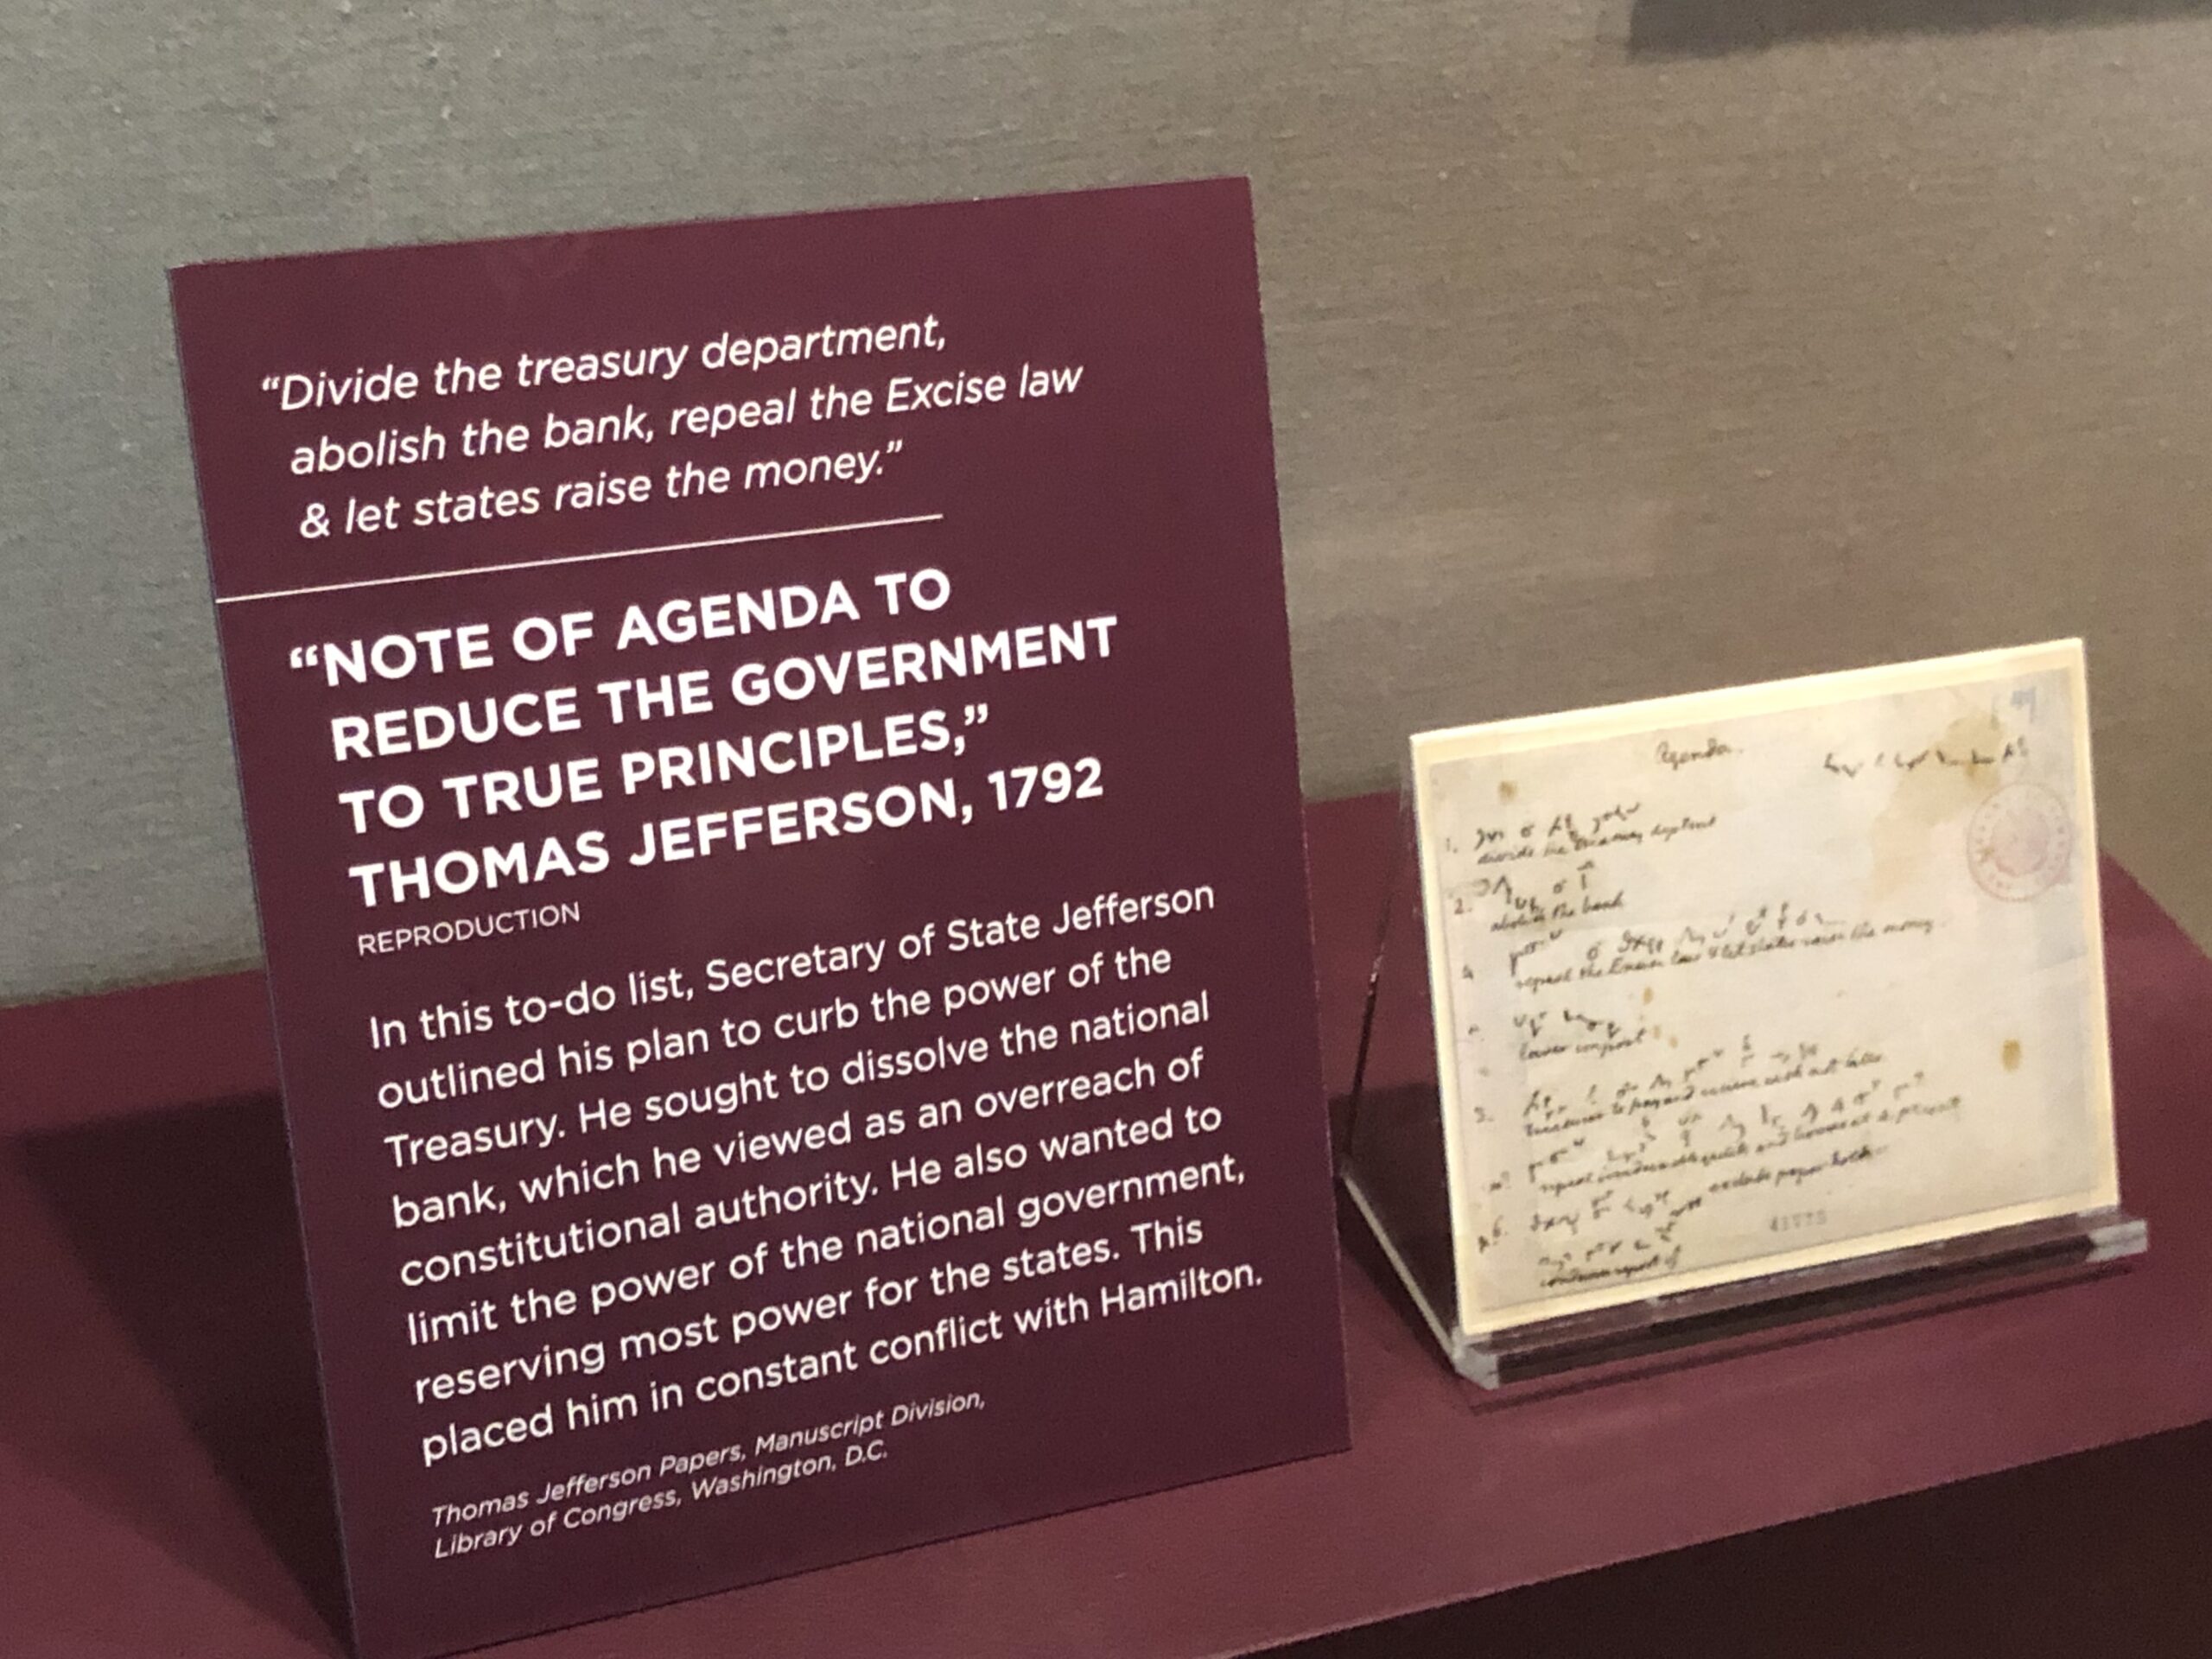 “Divide the treasury department,
abolish the bank, repeal the Excise law
& let states raise the money.”
“NOTE OF AGENDA TO
REDUCE THE GOVERNMENT
TO TRUE PRINCIPLES,”
THOMAS JEFFERSON, 1792
REPRODUCTION
In this to-do list, Secretary of State Jefferson
outlined his plan to curb the power of the
Treasury. He sought to dissolve the national
bank, which he viewed as an overreach of
constitutional authority. He also wanted to
limit the power of the national government,
reserving most power for the states. This
placed him in constant conflict with Hamilton.
Thomas Jefferson Papers, Manuscript Division,
Library of Congress, Washington, D.C.
Agenda.
1.
divide the treasury
2.
abolish the bank
repeal the Excise law & let states raise the money.
lower impost
3.
repeal and at present
6.
exclude paper